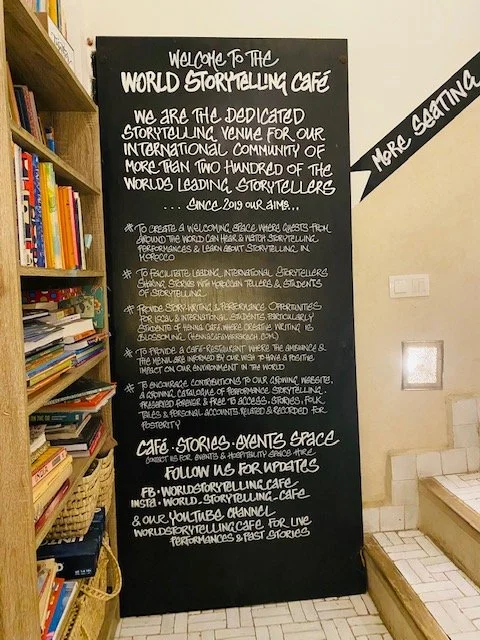 WELCOME TO THE
WORLD STORYTELLING CAFÉ
WE ARE THE DEDICATED
STORYTELLING VENUE FOR OUR
INTERNATIONAL COMMUNITY OF
MORE THAN TWO HUNDRED OF THE
WORLDS LEADING STORYTELLERS
. . . SINCE 2019 OUR AIMS...
* TO CREATE A WELCOMING SPACE WHERE GUESTS FROM
AROUND THE WORLD CAN HEAR & WATCH STORYTELLING
PERFORMANCES & LEARN ABOUT STORYTELLING IN
MOROCCO
* TO FACILITATE LEADING INTERNATIONAL STORYTELLERS
SHARING STORIES WITH MOROCCAN TELLERS & STUDENTS
OF STORYTELLING
* PROVIDE STORY-WRITING & PERFORMANCE OPPORTUNITIES
FOR LOCAL & INTERNATIONAL STUDENTS, PARTICULARLY
STUDENTS OF HENNA CAFÉ WHERE CREATIVE WRITING IS
BLOSSOMING (HENNACAFEMARRAKECH.COM)
* TO PROVIDE A CAFÉ-RESTAURANT WHERE THE AMBIANCE &
THE MENU ARE INFORMED BY OUR WISH TO HAVE A POSITIVE
IMPACT ON OUR ENVIRONMENT IN THE WORLD
* TO ENCOURAGE CONTRIBUTIONS TO OUR GROWING WEBSITE,
A GROWING CATALOGUE OF PERFORMANCE STORYTELLING,
PRESERVED FOREVER & FREE TO ACCESS, STORIES, FOLK
TALES & PERSONAL ACCOUNTS RELATED & RECORDED FOR
POSTERITY
CAFÉ · STORIES · EVENTS SPACE
CONTACT US FOR EVENTS & HOSPITALITY SPACE HIRE
FOLLOW US FOR UPDATES
FB · WORLDSTORYTELLING.CAFE
INSTA · WORLD_STORYTELLING_CAFE
& OUR YOUTUBE CHANNEL
WORLDSTORYTELLINGCAFE FOR LIVE
PERFORMANCES & PAST STORIES
MORE SEATING